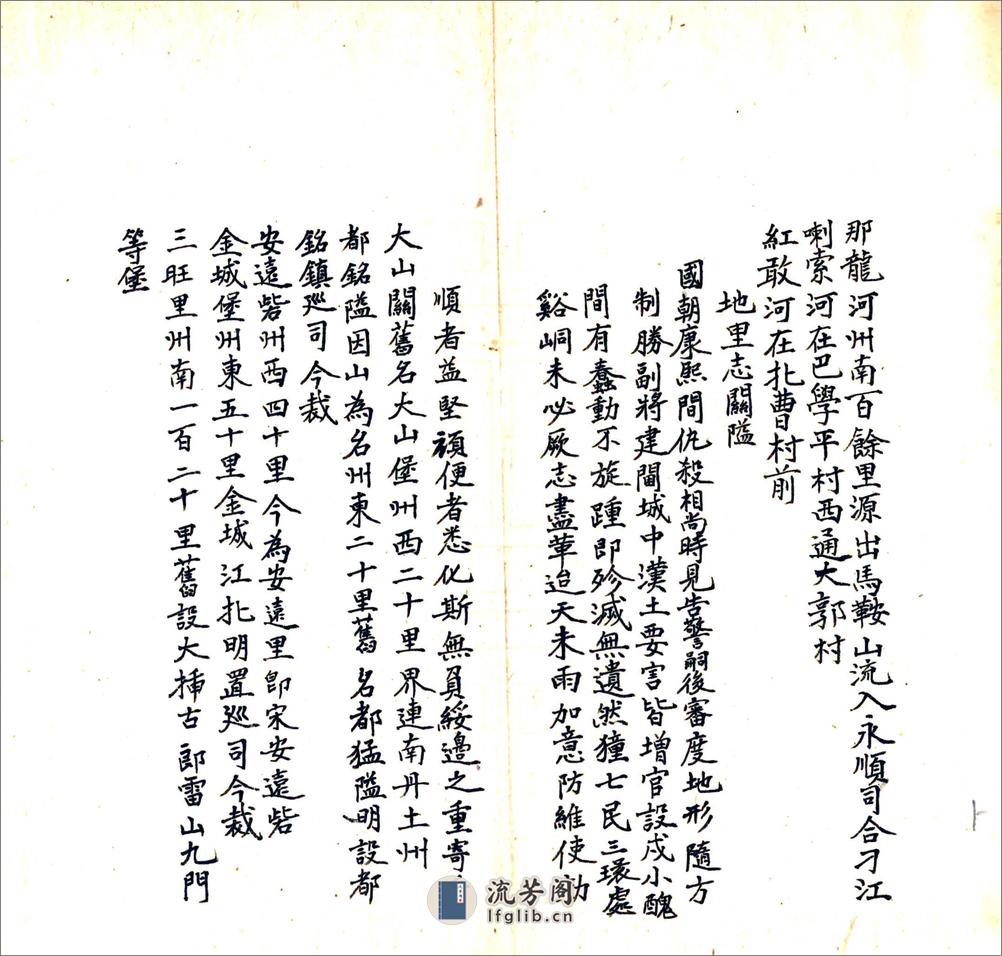 那龍河州南百餘里源出馬鞍山流入永順司合刁江
喇索河在巴學平村西通大郭村
紅敢河在北曹村前
地里志關隘
國朝康熙間仇殺相尚時見告警嗣後審度地形隨方
制勝副將建閫城中漢土要害皆增官設戍小醜
間有蠢動不旋踵即殄滅無遺然獞七民三環處
谿峒未必厥志盡革迨天未雨加意防維使効
順者益堅頑便者悉化斯無負綏邊之重寄
大山關舊名大山堡州西二十里界連南丹土州
都銘隘因山為名州東二十里舊名都猛隘明設都
銘鎮廵司今裁
安遠砦州西四十里今為安遠里卽宋安遠砦
金城堡州東五十里金城江北明置廵司今裁
三旺里州南一百二十里舊設大揷古郎雷山九門
等堡
流芳阁
lfglib.cn